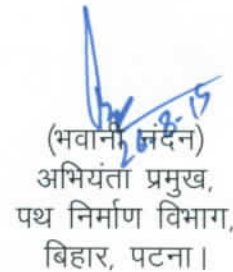 26-8-15
(भवानी नंदन)
अभियंता प्रमुख,
पथ निर्माण विभाग,
बिहार, पटना।